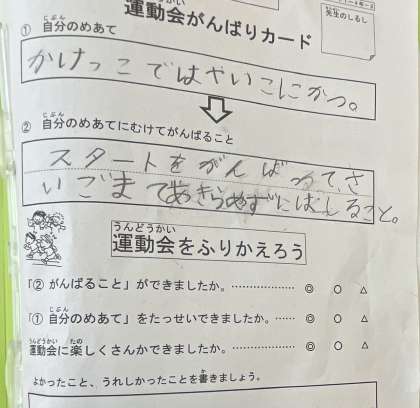 運動会がんばりカード
先生のしるし
① 自分のめあて
かけっこではやいこにかつ。
② 自分のめあてにむけてがんばること
スタートをがんばって、さ
いごまであきらめずにはしること。
運動会をふりかえろう
「② がんばること」ができましたか。 ◎ ○ △
「① 自分のめあて」をたっせいできましたか。 ◎ ○ △
運動会に楽しくさんかできましたか。 ◎ ○ △
よかったこと、うれしかったことを書きましょう。